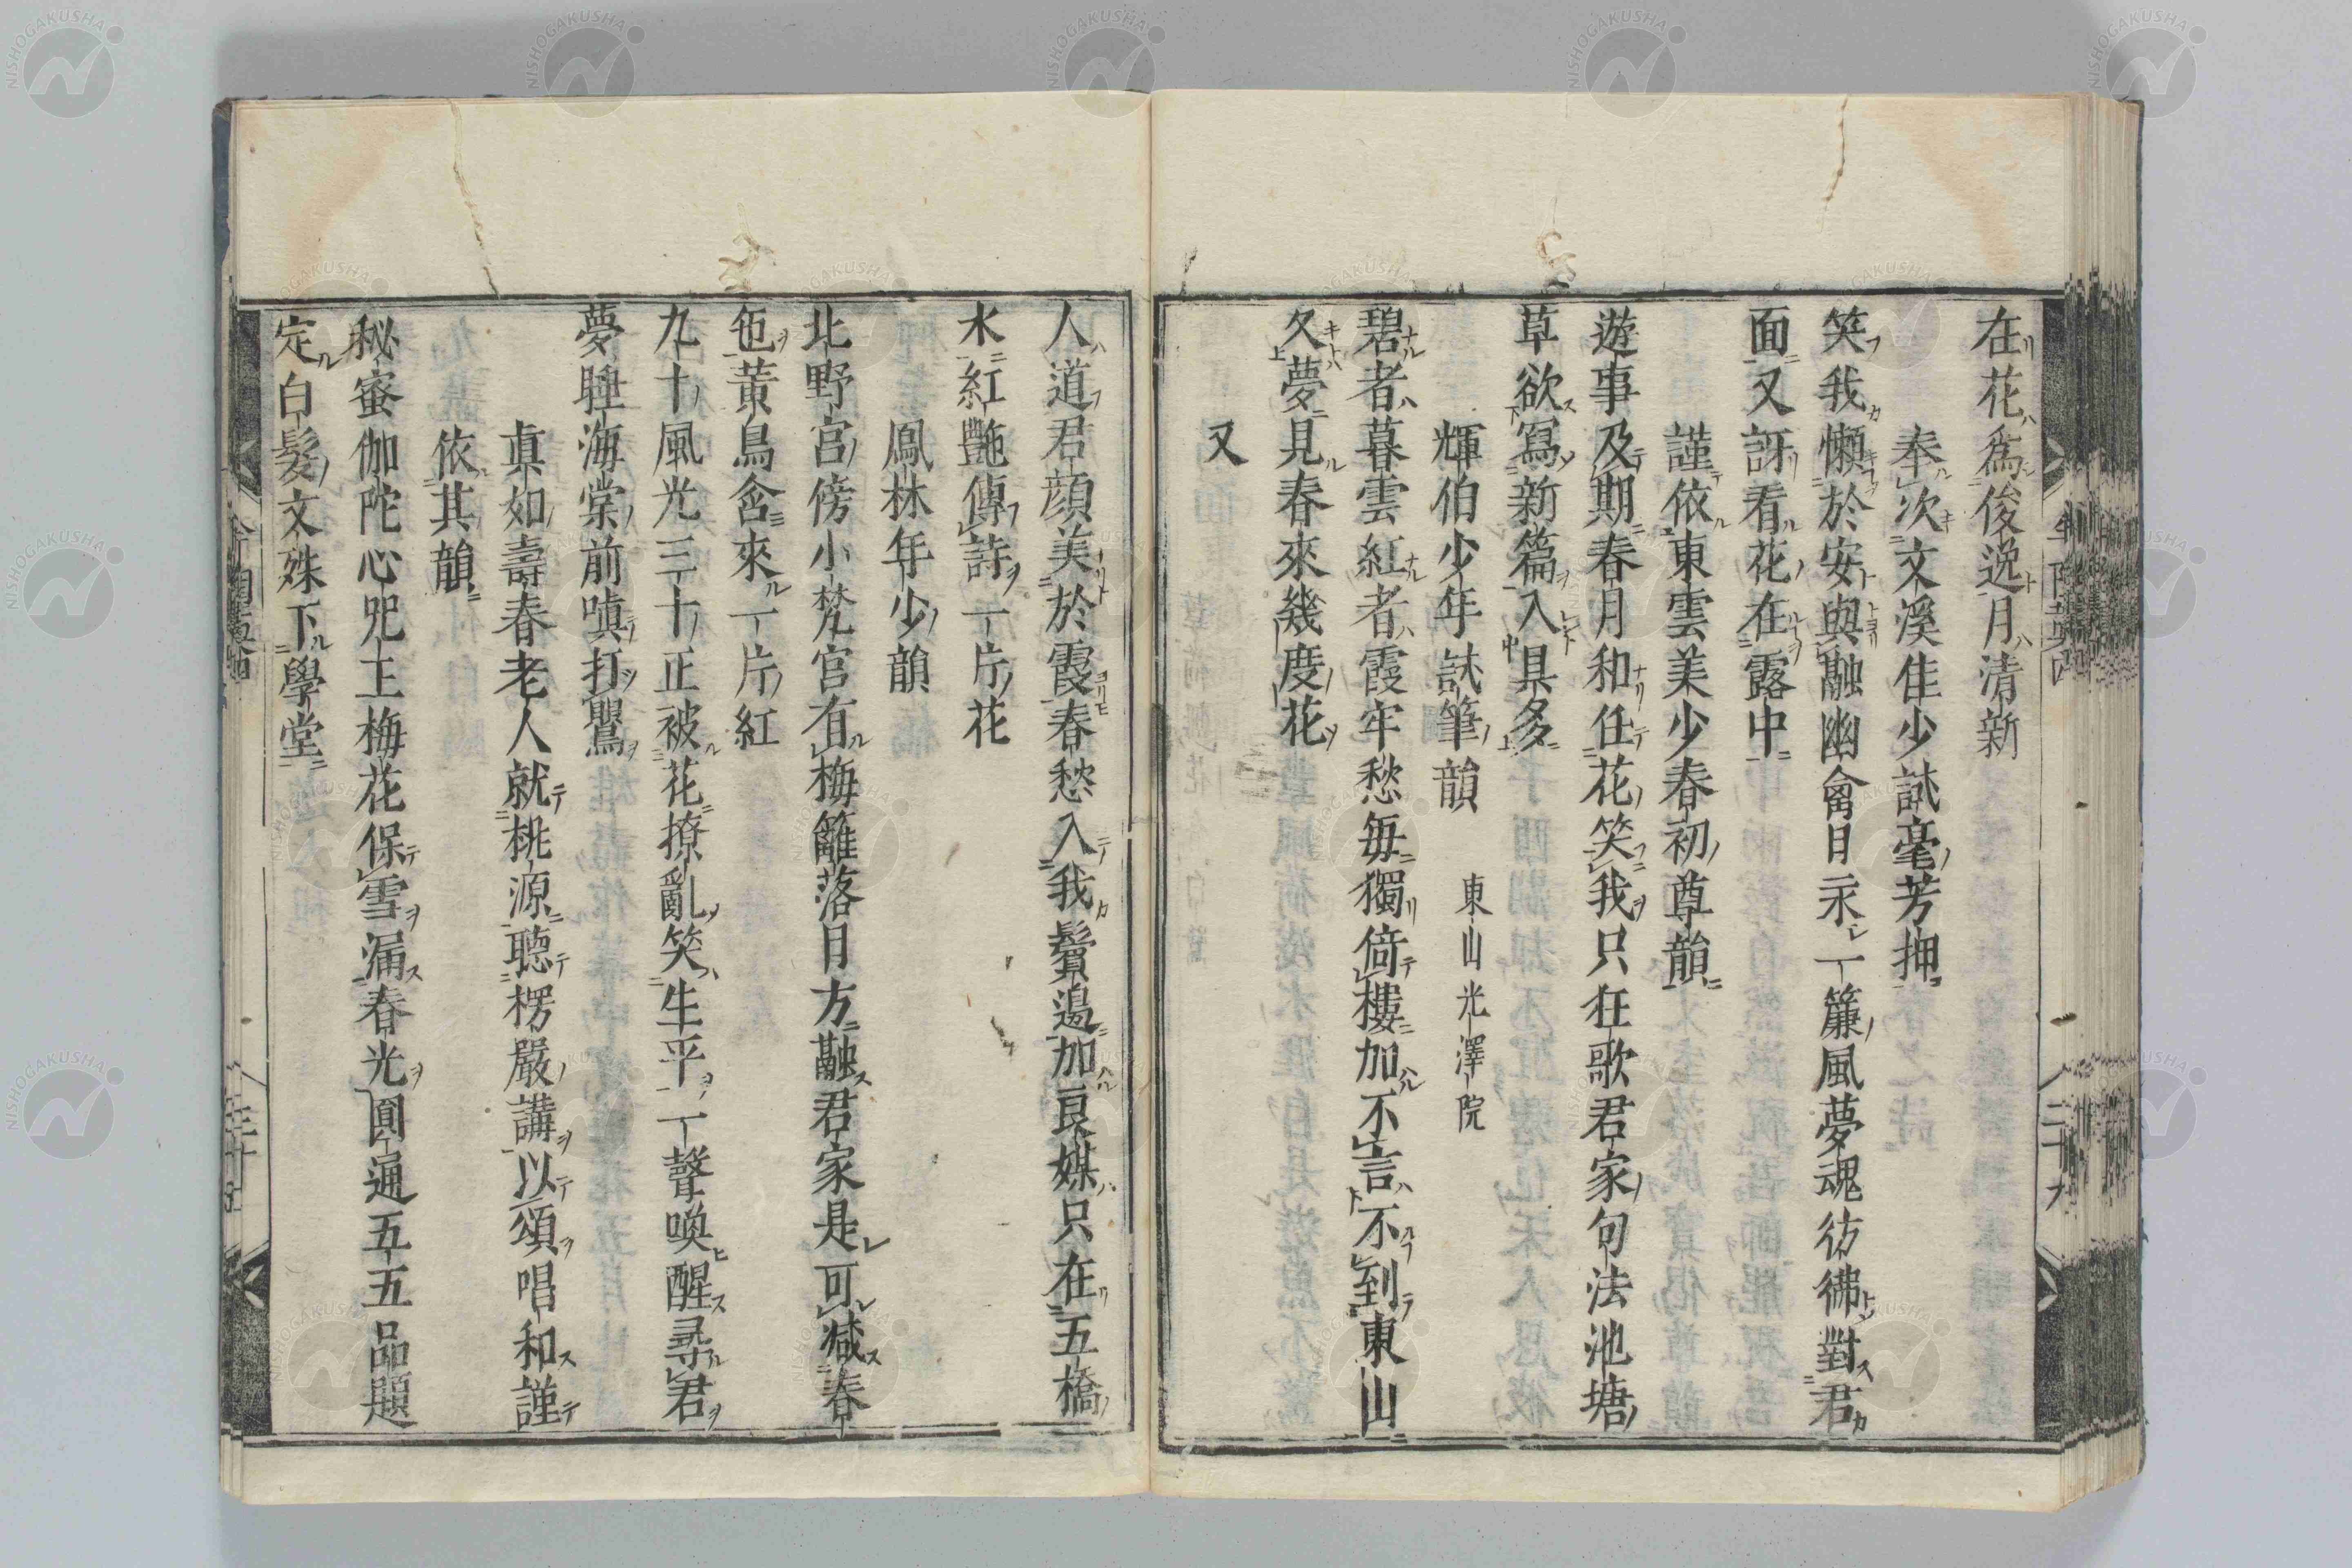 在花爲俊逸月清新
奉次文溪佳少試毫芳押
笑我懶於安與融幽禽日永一簾風夢魂彷彿對君
面又訝看花在露中
謹依東雲美少春初尊韻
遊事及期春月和任花笑我只狂歌君家句法池塘
草欲寫新篇入具多
輝伯少年試筆韻 東山光澤院
碧者暮雲紅者霞牢愁每獨倚樓加不言不到東山
久夢見春來幾度花
又
人道君顔美於霞春愁入我鬢邊加良媒只在五橋
水紅艶傳詩一片花
鳳林年少韻
北野宮傍小梵宮有梅籬落月方融君家是可減春
色黃鳥含來一片紅
九十風光三十正被花撩亂笑生平一聲喚醒尋君
夢睡海棠前嗔打鸎
眞如壽春老人就桃源聴楞嚴講以頌唱和謹
依其韻
秘蜜伽陀心咒王梅花保雪漏春光圓通五五品題
定白髮文殊下學堂